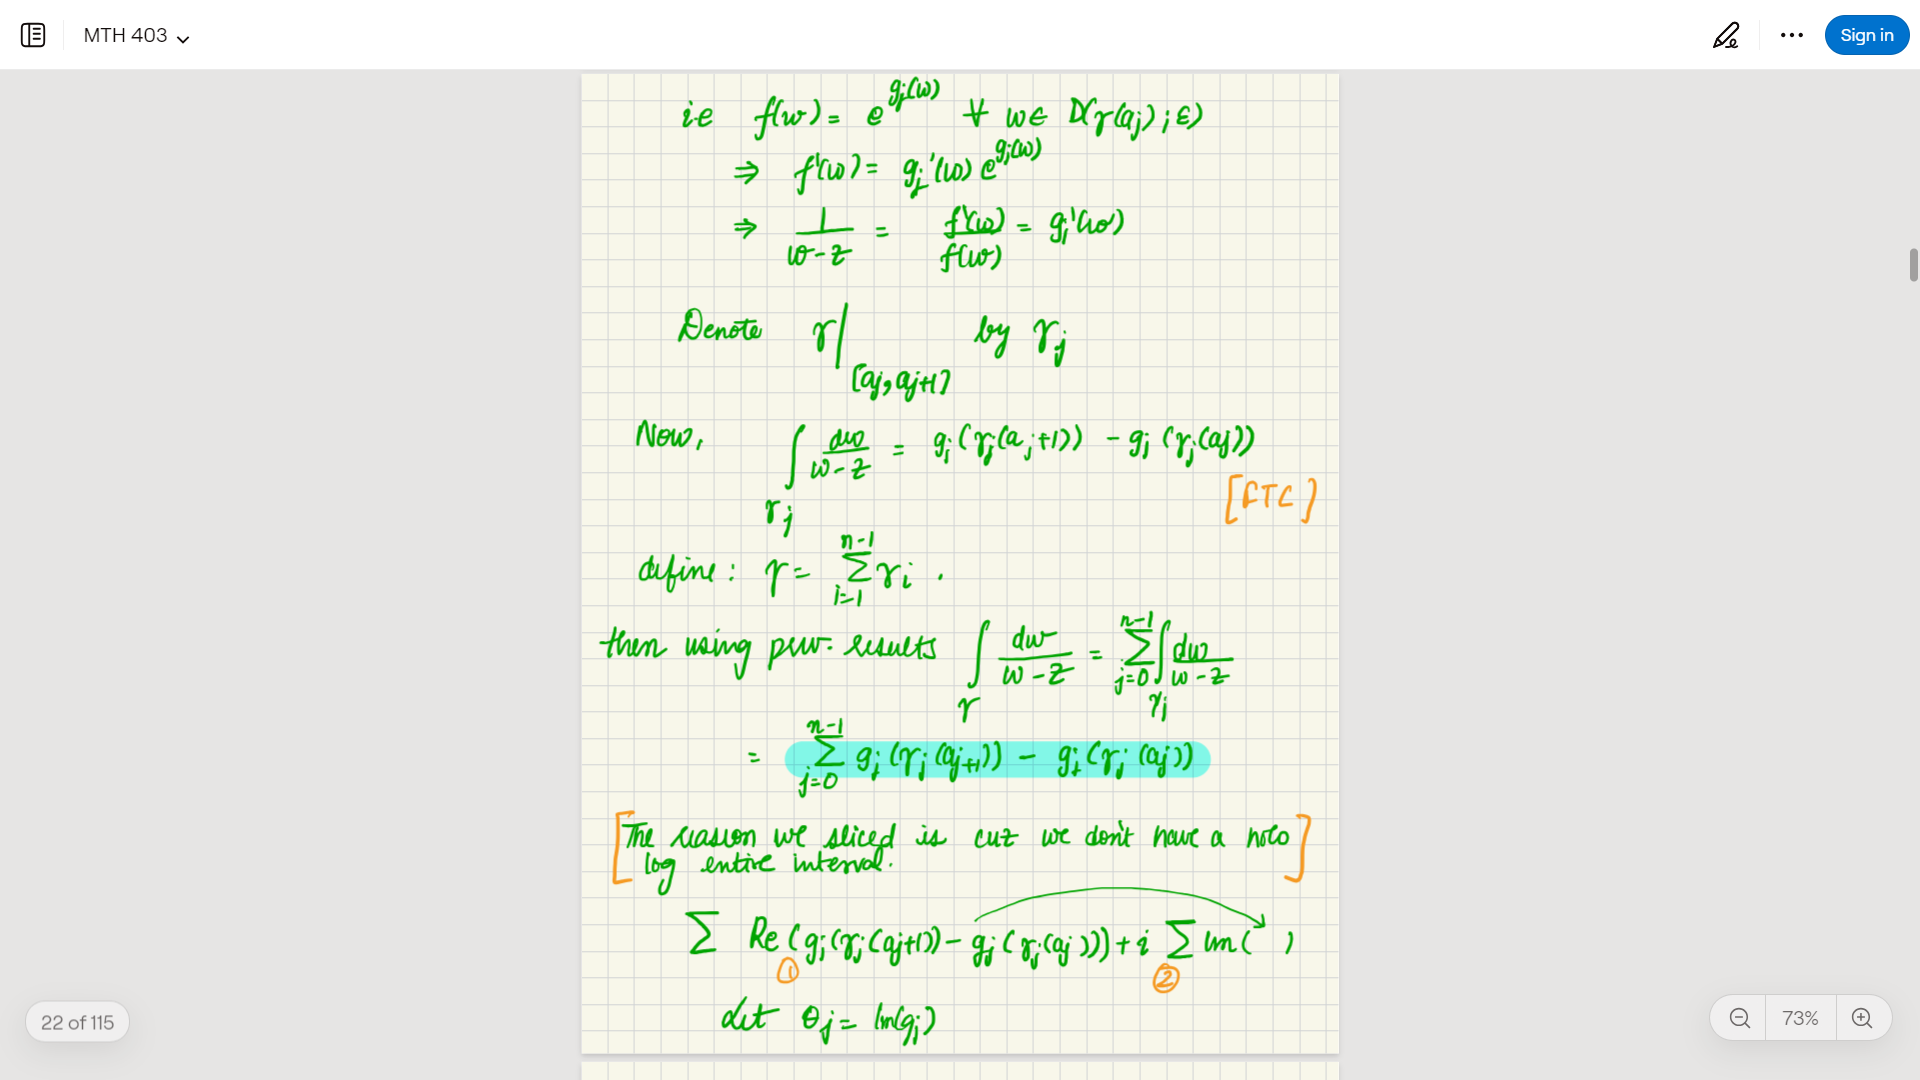 MTH 403
Sign in
i.e f(w) = e^{g_j(w)} ∀ w ∈ D(γ(a_j) ; ε)
⇒ f'(w) = g_j'(w) e^{g_j(w)}
⇒ 1/(w-z) = f'(w)/f(w) = g_j'(w)
Denote γ|_{[a_j, a_{j+1}]} by γ_j
Now, ∫_{γ_j} dw/(w-z) = g_j(γ_j(a_{j+1})) - g_j(γ_j(a_j))
[FTC]
define : γ = Σ_{i=1}^{n-1} γ_i .
then using prev. results ∫_γ dw/(w-z) = Σ_{j=0}^{n-1} ∫_{γ_j} dw/(w-z)
= Σ_{j=0}^{n-1} g_j(γ_j(a_{j+1})) - g_j(γ_j(a_j))
[The reason we sliced is cuz we don't have a holo
log entire interval.]
Σ Re(g_j(γ_j(a_{j+1})) - g_j(γ_j(a_j))) + i Σ Im( )
① ②
Let θ_j = Im(g_j)
22 of 115
73%